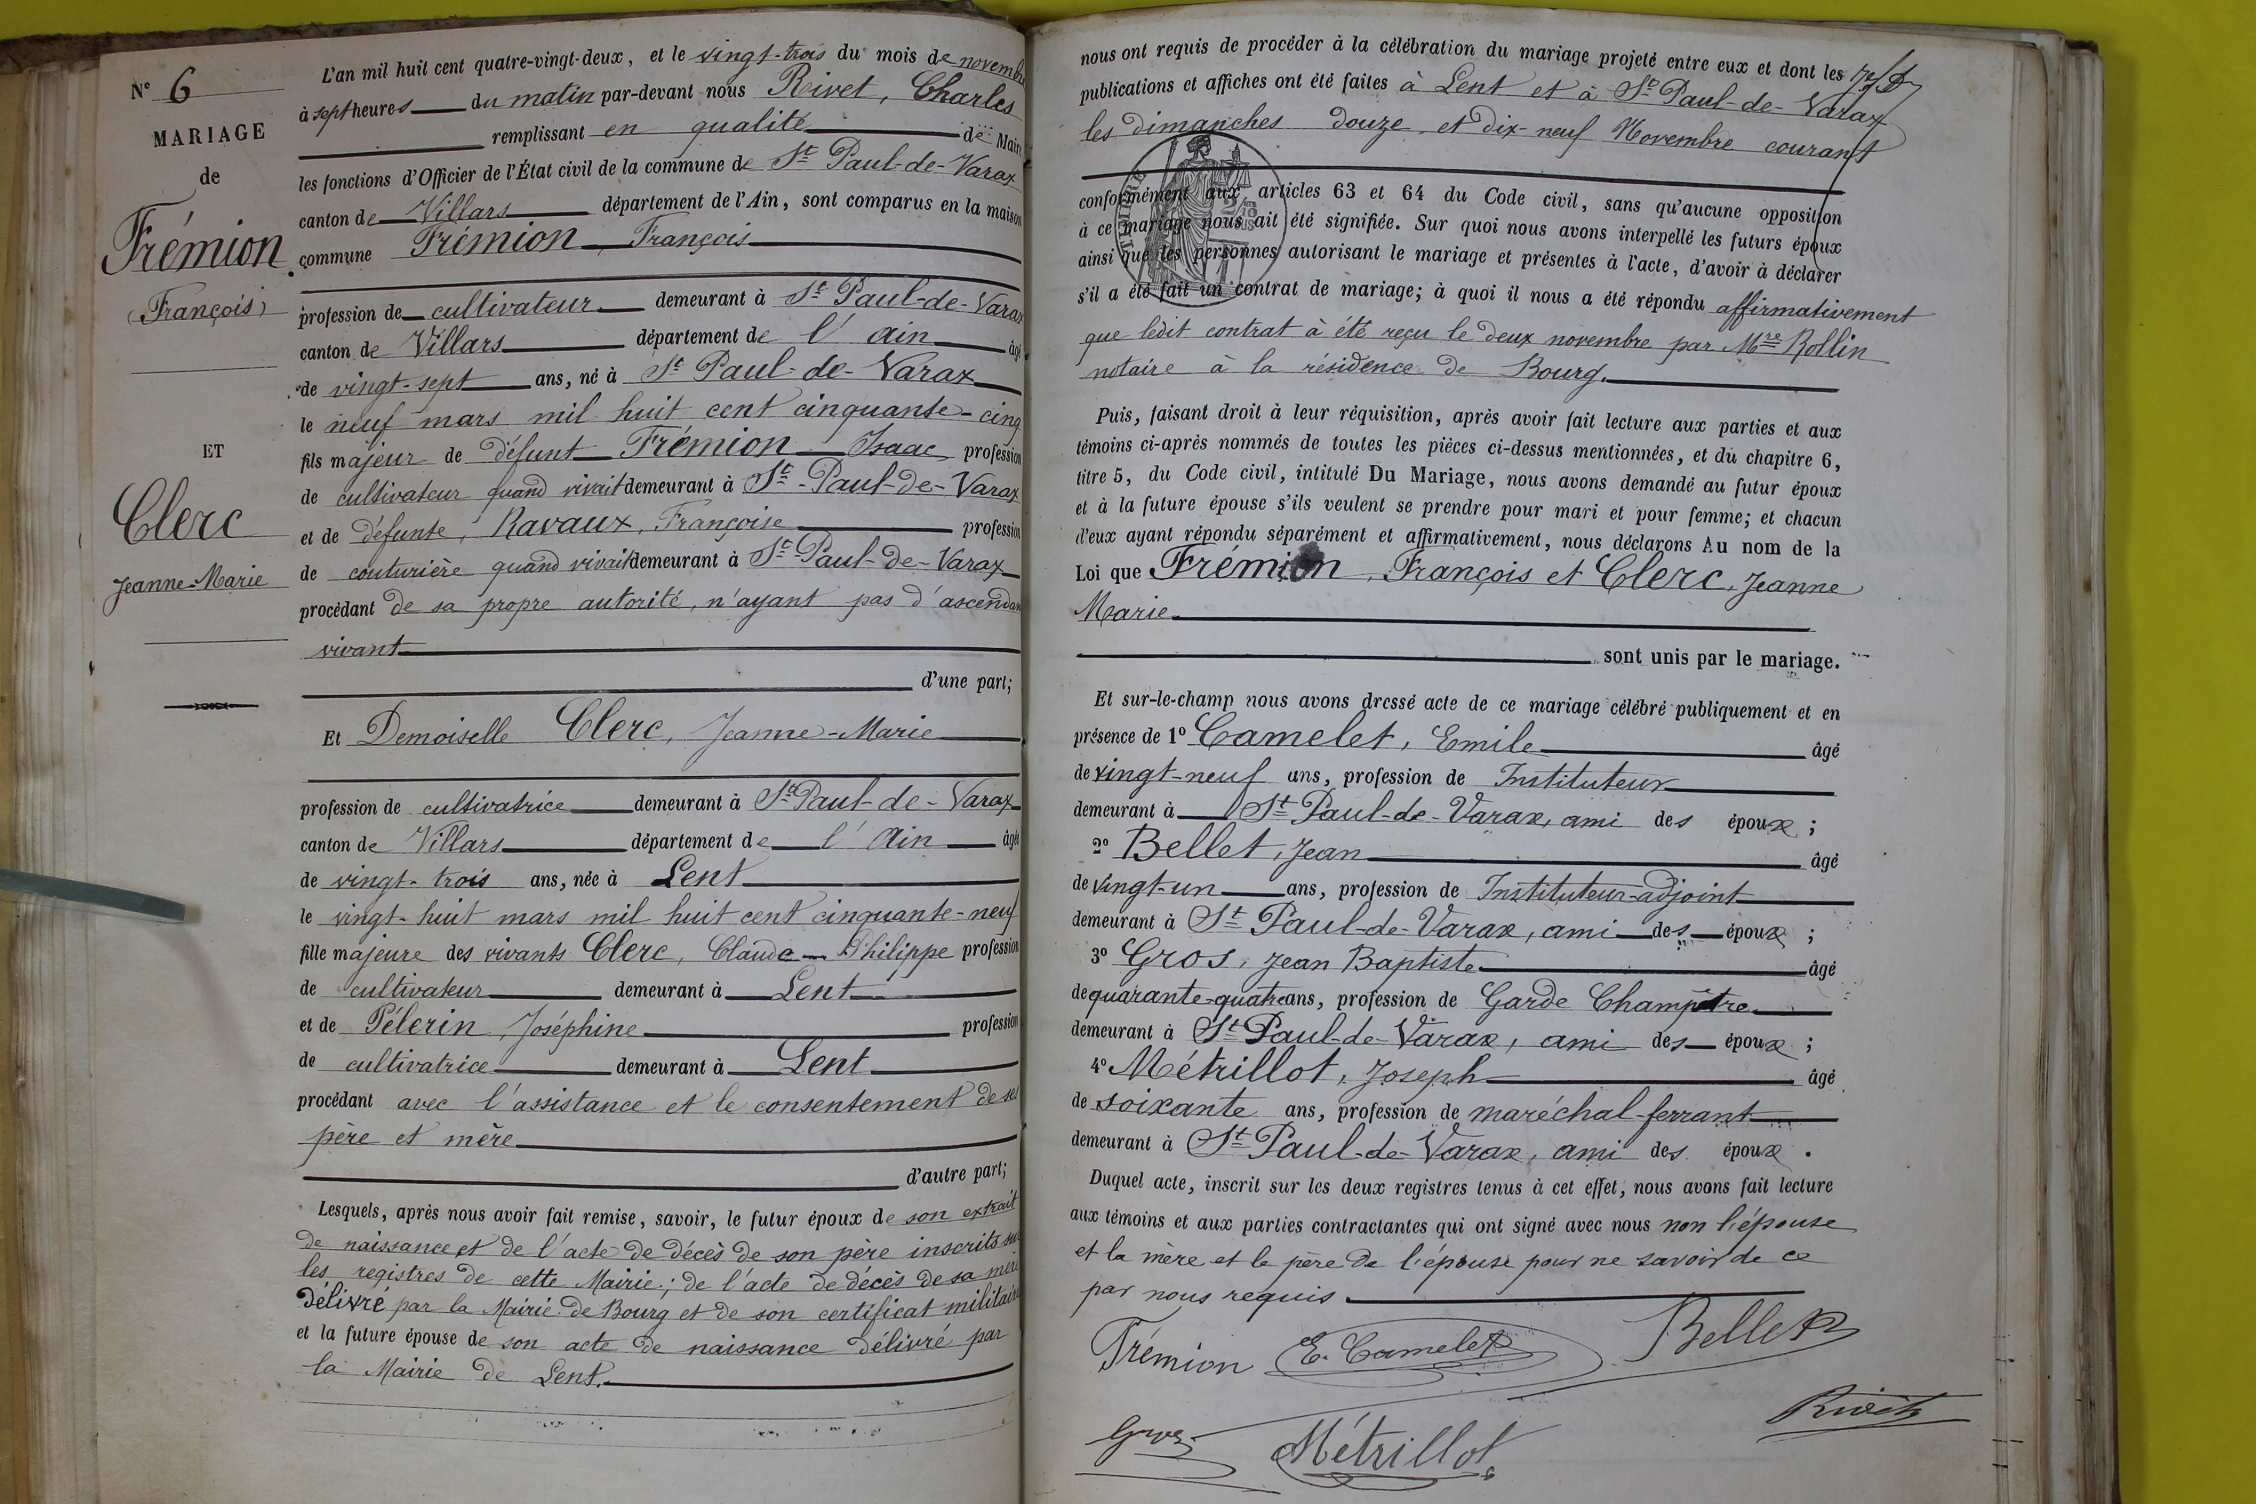 N° 6
MARIAGE
de
Frémion
(François)
ET
Clerc
Jeanne-Marie
L'an mil huit cent quatre-vingt-deux, et le vingt-trois du mois de novembre
à sept heures du matin par-devant nous Rivet, Charles
remplissant en qualité de Maire
les fonctions d'Officier de l'État civil de la commune de St Paul-de-Varax
canton de Villars département de l'Ain, sont comparus en la maison
commune Frémion François
profession de cultivateur demeurant à St Paul-de-Varax
canton de Villars département de l'Ain âgé
de vingt-sept ans, né à St Paul-de-Varax
le neuf mars mil huit cent cinquante-cinq
fils majeur de défunt Frémion Isaac profession
de cultivateur quand vivait demeurant à St-Paul-de-Varax
et de défunte, Ravaux, Françoise profession
de couturière quand vivait demeurant à St Paul-de-Varax
procédant de sa propre autorité, n'ayant pas d'ascendant
vivant
d'une part;
Et Demoiselle Clerc, Jeanne-Marie
profession de cultivatrice demeurant à St Paul-de-Varax
canton de Villars département de l'Ain âgée
de vingt-trois ans, née à Lent
le vingt-huit mars mil huit cent cinquante-neuf
fille majeure des vivants Clerc, Claude-Philippe profession
de cultivateur demeurant à Lent
et de Pélerin, Joséphine profession
de cultivatrice demeurant à Lent
procédant avec l'assistance et le consentement de ses
père et mère
d'autre part;
Lesquels, après nous avoir fait remise, savoir, le futur époux de son extrait
de naissance et de l'acte de décès de son père inscrits sur
les registres de cette Mairie; de l'acte de décès de sa mère
délivré par la Mairie de Bourg et de son certificat militaire
et la future épouse de son acte de naissance délivré par
la Mairie de Lent.
nous ont requis de procéder à la célébration du mariage projeté entre eux et dont les
publications et affiches ont été faites à Lent et à St Paul-de-Varax
les dimanches douze et dix-neuf Novembre courant
conformément aux articles 63 et 64 du Code civil, sans qu'aucune opposition
à ce mariage nous ait été signifiée. Sur quoi nous avons interpellé les futurs époux
ainsi que les personnes autorisant le mariage et présentes à l'acte, d'avoir à déclarer
s'il a été fait un contrat de mariage; à quoi il nous a été répondu affirmativement
que ledit contrat à été reçu le deux novembre par Mre Rollin
notaire à la résidence de Bourg.
Puis, faisant droit à leur réquisition, après avoir fait lecture aux parties et aux
témoins ci-après nommés de toutes les pièces ci-dessus mentionnées, et du chapitre 6,
titre 5, du Code civil, intitulé Du Mariage, nous avons demandé au futur époux
et à la future épouse s'ils veulent se prendre pour mari et pour femme; et chacun
d'eux ayant répondu séparément et affirmativement, nous déclarons Au nom de la
Loi que Frémion, François et Clerc, Jeanne
Marie
sont unis par le mariage.
Et sur-le-champ nous avons dressé acte de ce mariage célébré publiquement et en
présence de 1° Camelet, Emile âgé
de vingt-neuf ans, profession de Instituteur
demeurant à St Paul-de-Varax, ami des époux ;
2° Bellet, Jean âgé
de vingt-un ans, profession de Instituteur-adjoint
demeurant à St Paul-de-Varax, ami des époux ;
3° Gros, Jean Baptiste âgé
de quarante-quatre ans, profession de Garde Champêtre
demeurant à St Paul-de-Varax, ami des époux ;
4° Métrillot, Joseph âgé
de soixante ans, profession de maréchal-ferrant
demeurant à St Paul-de-Varax, ami des époux.
Duquel acte, inscrit sur les deux registres tenus à cet effet, nous avons fait lecture
aux témoins et aux parties contractantes qui ont signé avec nous non l'épouse
et la mère et le père de l'épouse pour ne savoir de ce
par nous requis
Frémion E. Camelet Bellet
Rivet
Gros Métrillot